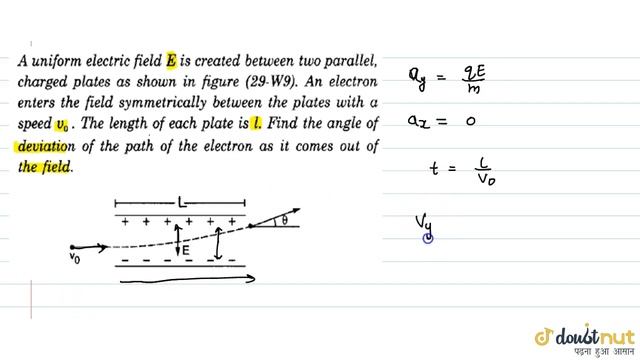 A uniform electric field E is created between two parallel,
charged plates as shown in figure (29-W9). An electron
enters the field symmetrically between the plates with a
speed v₀. The length of each plate is l. Find the angle of
deviation of the path of the electron as it comes out of
the field.
L
+ + + + + +
θ
v₀
E
− − − − − −
a_y = qE/m
a_x = 0
t = L/v₀
V_y
doubtnut
पढ़ना हुआ आसान